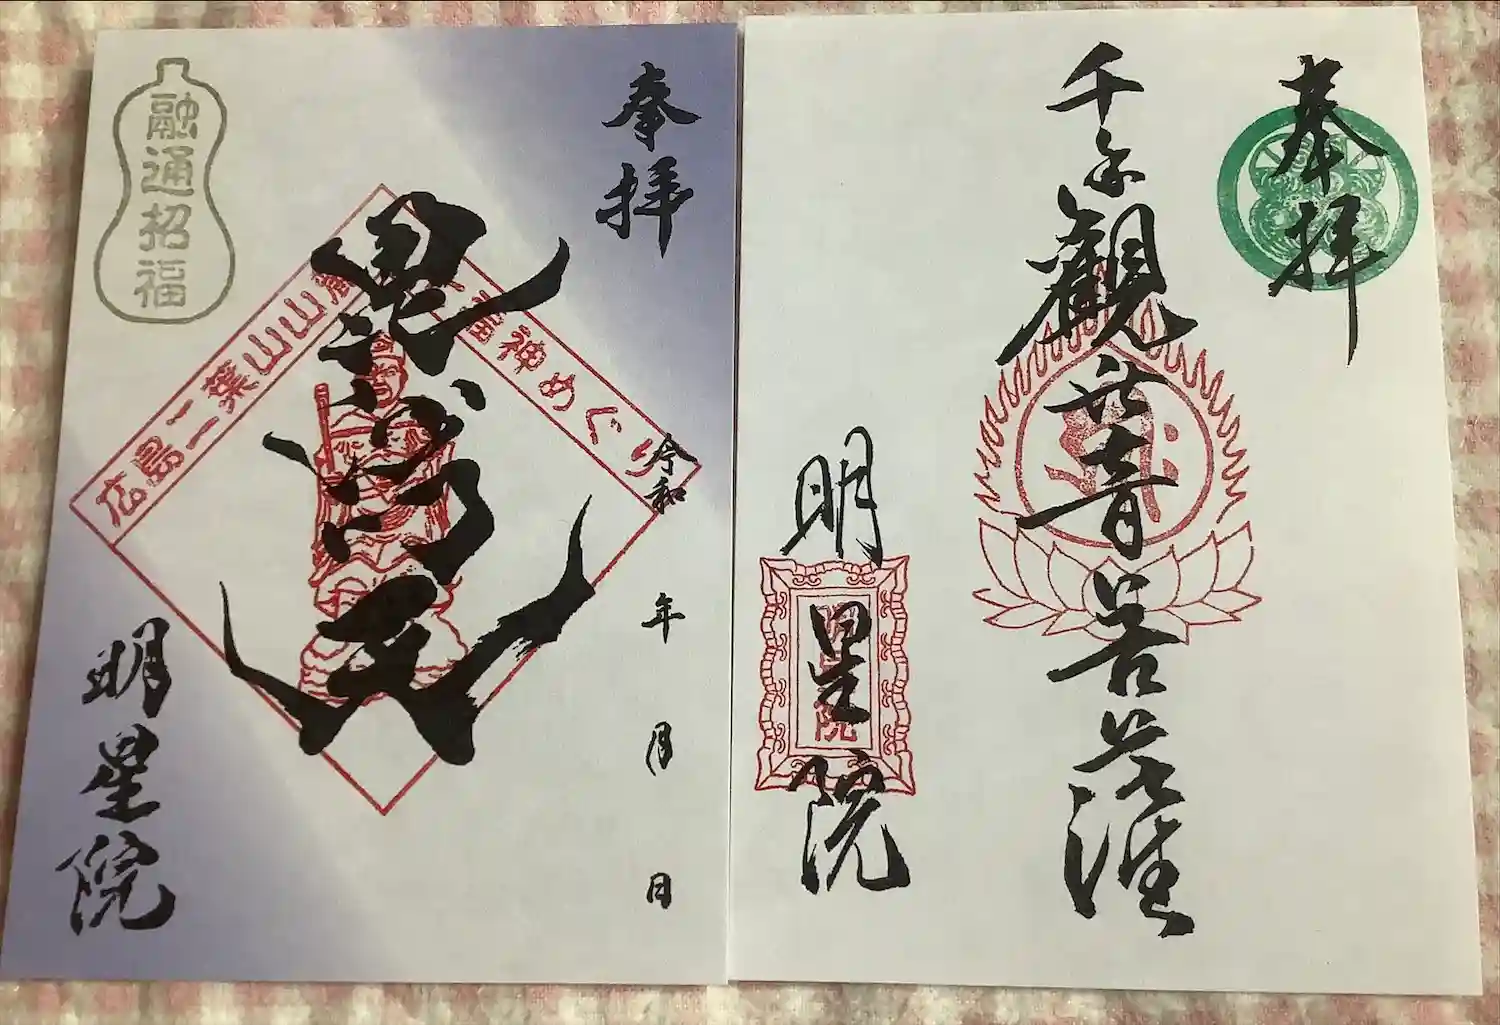 奉拝
令和 年 月 日
毘沙門天
広島二葉山山麓
福神めぐり
融通招福
明星院
奉拝
千手觀世音菩薩
明星院
明星院